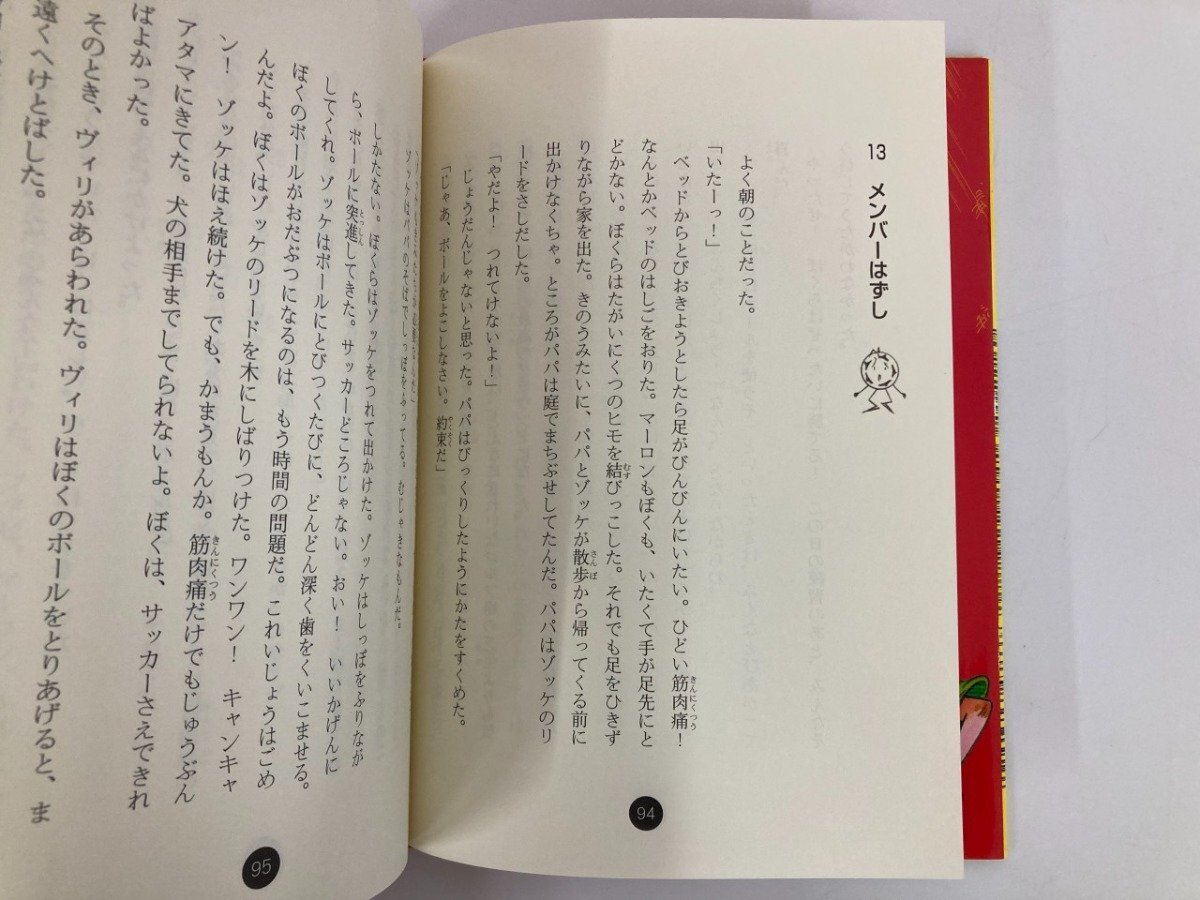 13 メンバーはずし
よく朝のことだった。
「いたーっ!」
ベッドからとびおきようとしたら足がびんびんにいたい。ひどい筋肉痛!
なんとかベッドのはしごをおりた。マーロンもぼくも、いたくて手が足先にと
どかない。ぼくらはたがいにくつのヒモを結びっこした。それでも足をひきず
りながら家を出た。きのうみたいに、パパとゾッケが散歩から帰ってくる前に
出かけなくちゃ。ところがパパは庭でまちぶせしてたんだ。パパはゾッケのリ
ードをさしだした。
「やだよ! つれてけないよ!」
じょうだんじゃないと思った。パパはびっくりしたようにかたをすくめた。
「じゃあ、ボールをよこしなさい。約束だ」
94
ゾッケはパパのそばでしっぽをふってる。むじゃきなもんだ。
しかたない。ぼくらはゾッケをつれて出かけた。ゾッケはしっぽをふりなが
ら、ボールに突進してきた。サッカーどころじゃない。おい! いいかげんに
してくれ。ゾッケはボールにとびつくたびに、どんどん深く歯をくいこませる。
ぼくのボールがおだぶつになるのは、もう時間の問題だ。これいじょうはごめ
んだよ。ぼくはゾッケのリードを木にしばりつけた。ワンワン! キャンキャ
ン! ゾッケはほえ続けた。でも、かまうもんか。筋肉痛だけでもじゅうぶん
アタマにきてた。犬の相手までしてられないよ。ぼくは、サッカーさえできれ
ばよかった。
そのとき、ヴィリがあらわれた。ヴィリはぼくのボールをとりあげると、ま
遠くへけとばした。
95